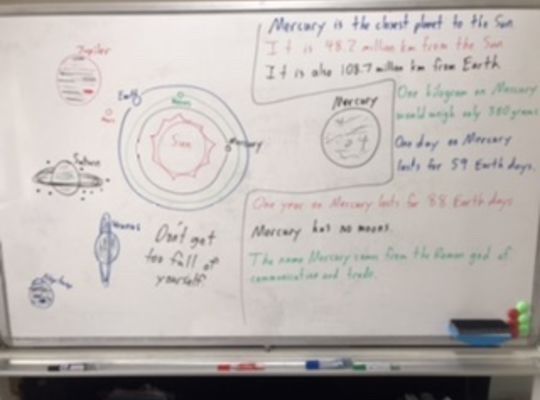 Mercury is the closest planet to the Sun
It is 48.2 million km from the Sun
It is also 108.7 million km from Earth
Jupiter
Earth
Venus
Mars
Sun
Mercury
Mercury
One kilogram on Mercury
would weigh only 380 grams
One day on Mercury
lasts for 59 Earth days.
Saturn
Uranus
Neptune
Don't get
too full of
yourself
One year on Mercury lasts for 88 Earth days
Mercury has no moons.
The name Mercury comes from the Roman god of
communication and trade.